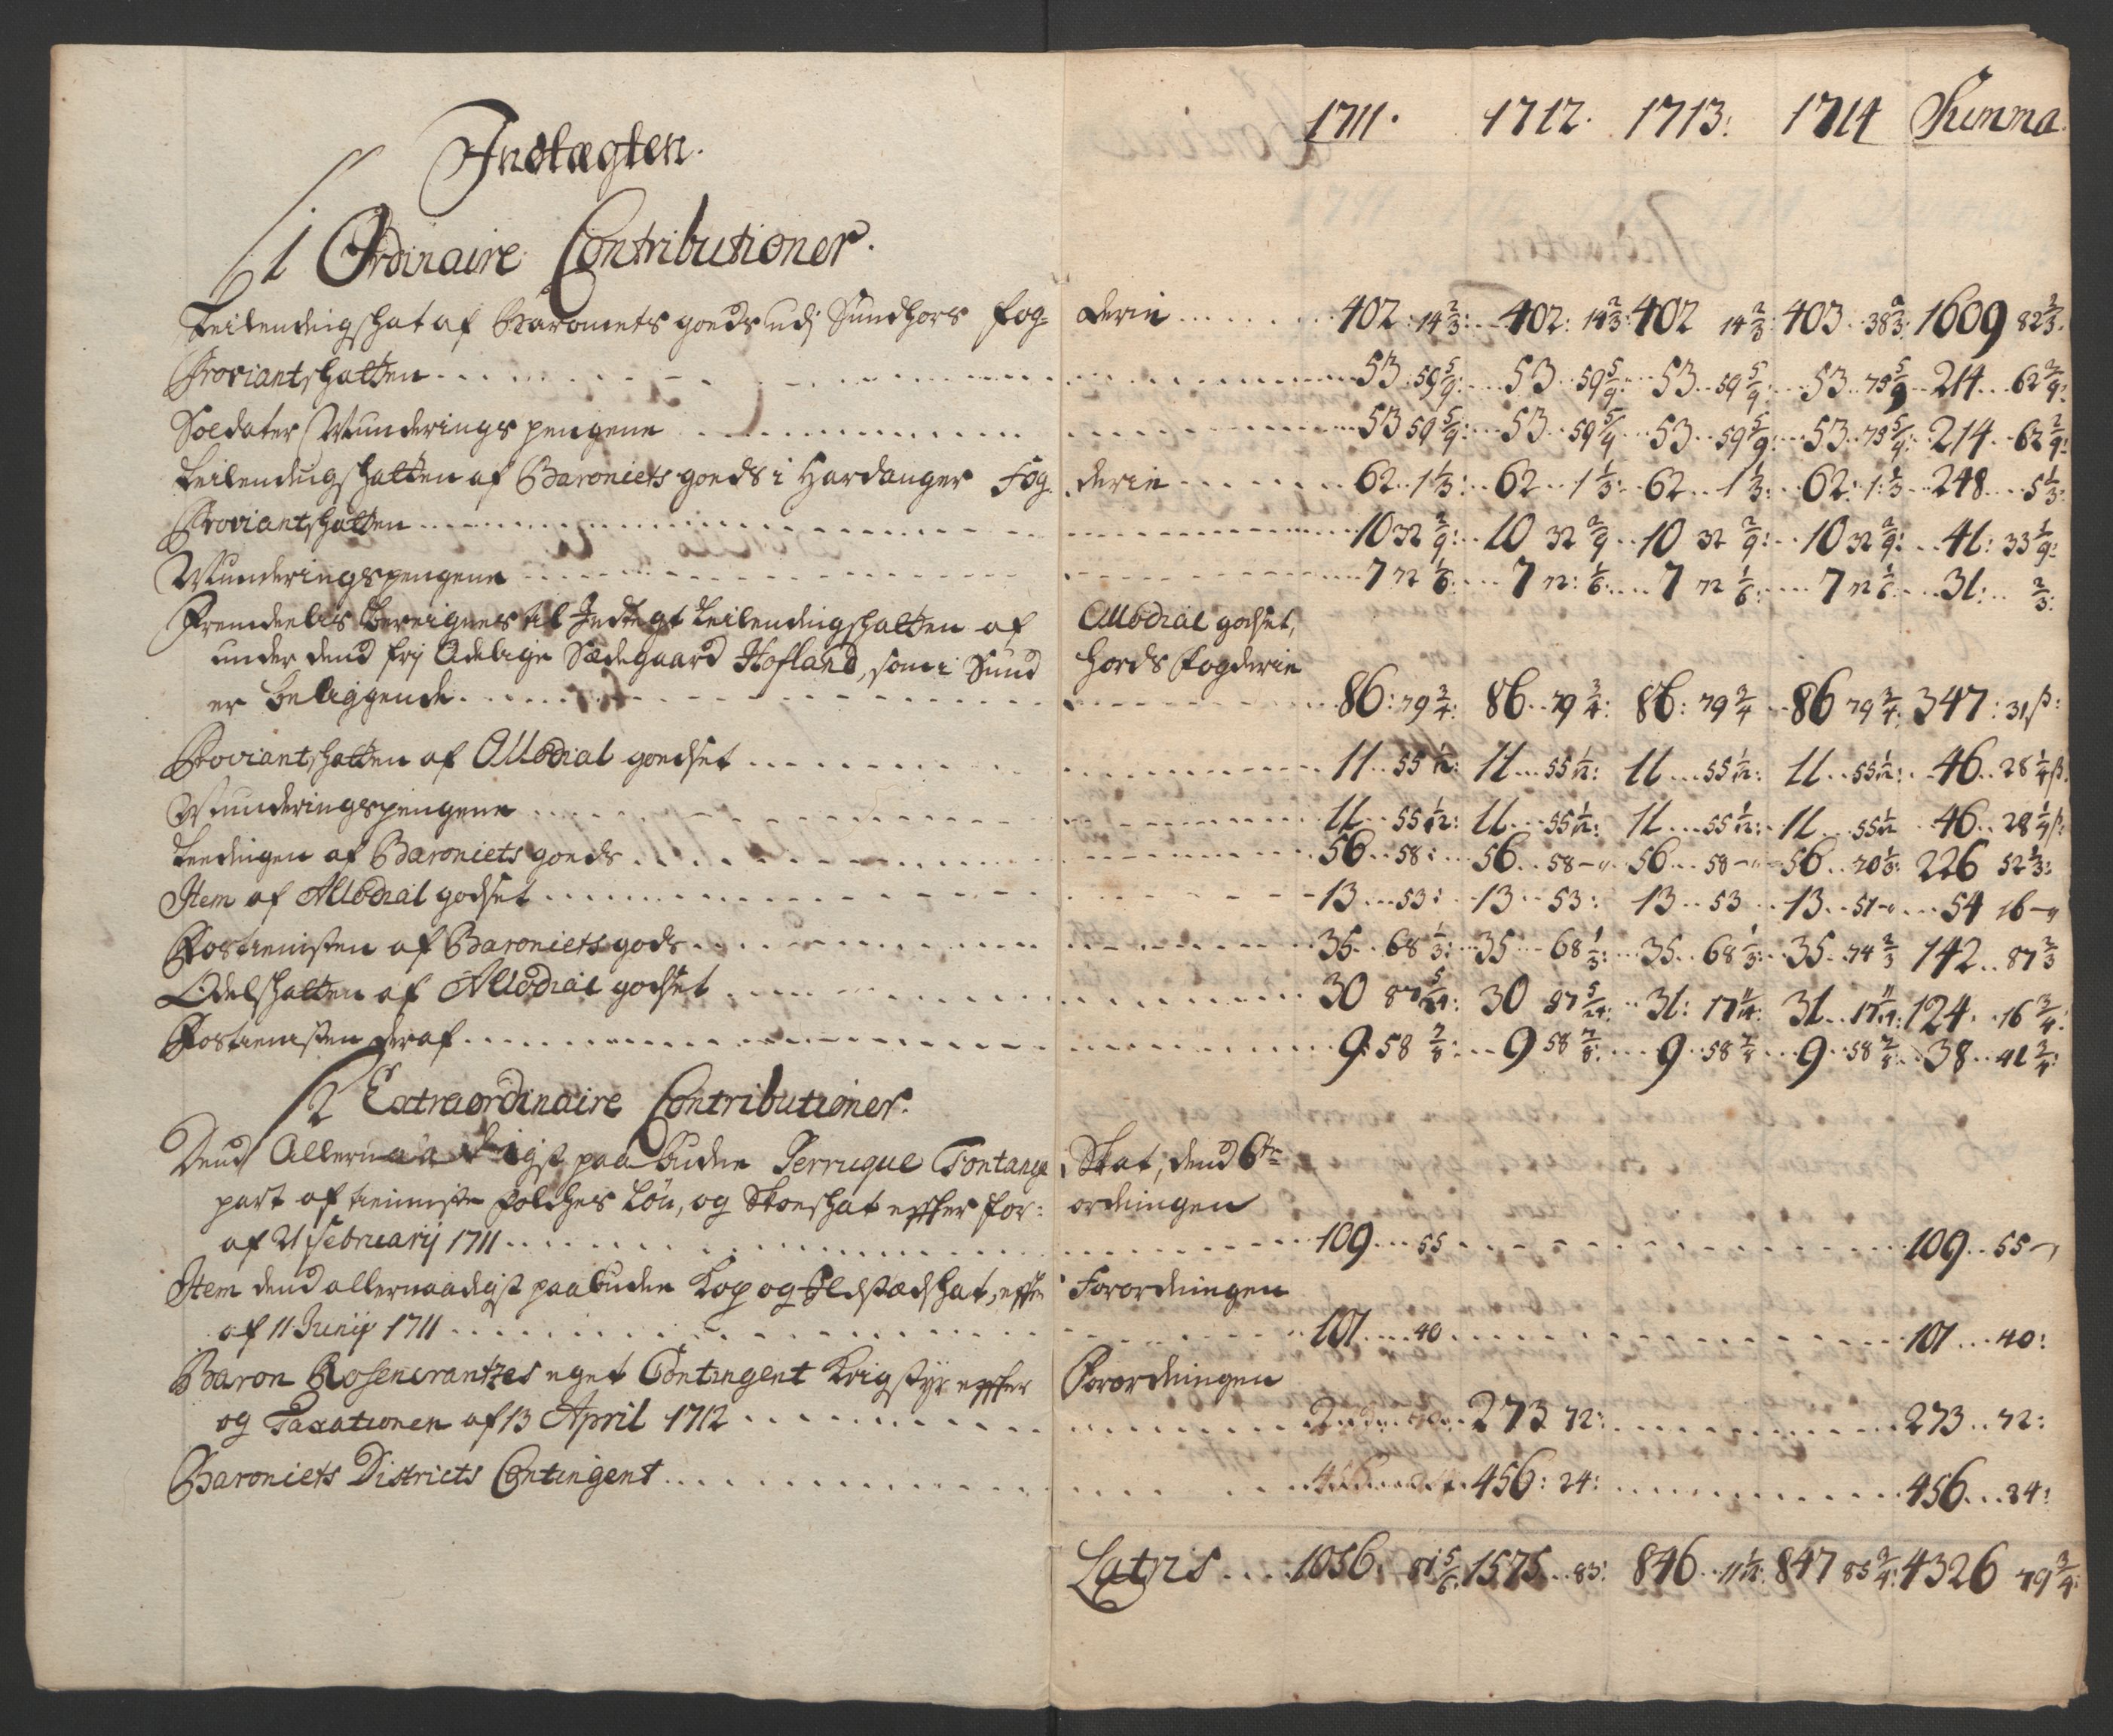 1711. 1712. 1713: 1714 Summa.
Indtægten.
1 Ordinaire Contributioner.
Leilendingschat af Baroniets goeds udj Sundhors fog- derie ........ 402: 14 2/3: 402: 14 2/3: 402 14 2/3: 403.. 38 2/3: 1609 82 2/3.
Proviantschatten ........ 53: 59 5/9: 53.. 59 5/9: 53.. 59 5/9: 53.. 75 5/9 214.. 62 2/9:
Soldater Munderings pengene ........ 53 59 5/9: 53.. 59 5/9 53.. 59 5/9: 53.. 75 5/9: 214.. 62 2/9:
Leilendingschatten af Baroniets goeds i Hardanger Fog- derie ........ 62.. 1 1/3: 62.. 1 1/3: 62.. 1 1/3: 62: 1 1/3 248.. 5 1/3:
Proviantschatten ........ 10 32 2/9: 10 32 2/9 10 32 2/9: 10 32 2/9: 41: 33 1/9:
Munderingspengene ........ 7 72 1/6: 7 72: 1/6: 7 72 1/6: 7 72 1/6 31: 2/3:
Fremdeelis bereignes til Indtegt Leilendingschatten af Allodial godset,
under dend frij Adelige Sædegaard Hofland, som i Sund hords fogderie
er beliggende ........ 86: 79 3/4: 86.. 79 3/4: 86: 79 3/4 86 79 3/4: 347: 31 ß:
Proviantschatten af Allodial goedset ........ 11.. 55 1/12: 11.. 55 1/12: 11.. 55 1/12: 11.. 55 1/12: 46.. 28 1/4 ß.
Munderingspengene ........ 11.. 55 1/12: 11.. 55 1/12: 11.. 55 1/12: 11.. 55 1/12 46.. 28 1/4 ß:
Leedingen af Baroniets goeds ........ 56.. 58: 56.. 58 - 56.. 58 - 56.. 70 1/3: 226 52 1/3:
Item af Allodial godset ........ 13.. 53: 13.. 53: 13.. 53 13.. 57 - 54 16 -
Fostienisten af Baroniets gods ........ 35.. 68 1/3: 35.. 68 1/3: 35.. 68 1/3: 35.. 74 2/3 142.. 87 2/3
Odelschatten af Allodial godset ........ 30 87 5/24: 30 87 5/24: 31: 17 11/24: 31.. 17 11/24: 124.. 16 3/4:
Fostienisten deraf ........ 9: 58 7/8: 9 58 7/8: 9.. 58 7/8 9.. 58 7/8: 38.. 41 3/4:
2 Extraordinaire Contributioner.
Dend Allernaadigst paabudne Perruque Fontange Skat, dend 6te
part af tienniste folches Løn, og Skoeschat effter for= ordningen
af 21 February 1711 ........ 109.. 55 ........ 109.. 55 -
Item dend allernaadigst paabudne Kop og Ildstædschat, effter Forordningen
af 11 Junij 1711 ........ 101.. 40 ........ 101.. 40:
Baron Rosencrantzes eget Contingent Krigstyr effter Forordningen
og Taxationen af 13 April 1712 ........ 273 72: ........ 273.. 72:
Baroniets Districts Contingent ........ 456: 24: ........ 456.. 24:
Latris .... 1056: 81 5/6: 1575.. 83: 846.. 11 1/12: 847 85 3/4: 4326 79 3/4: